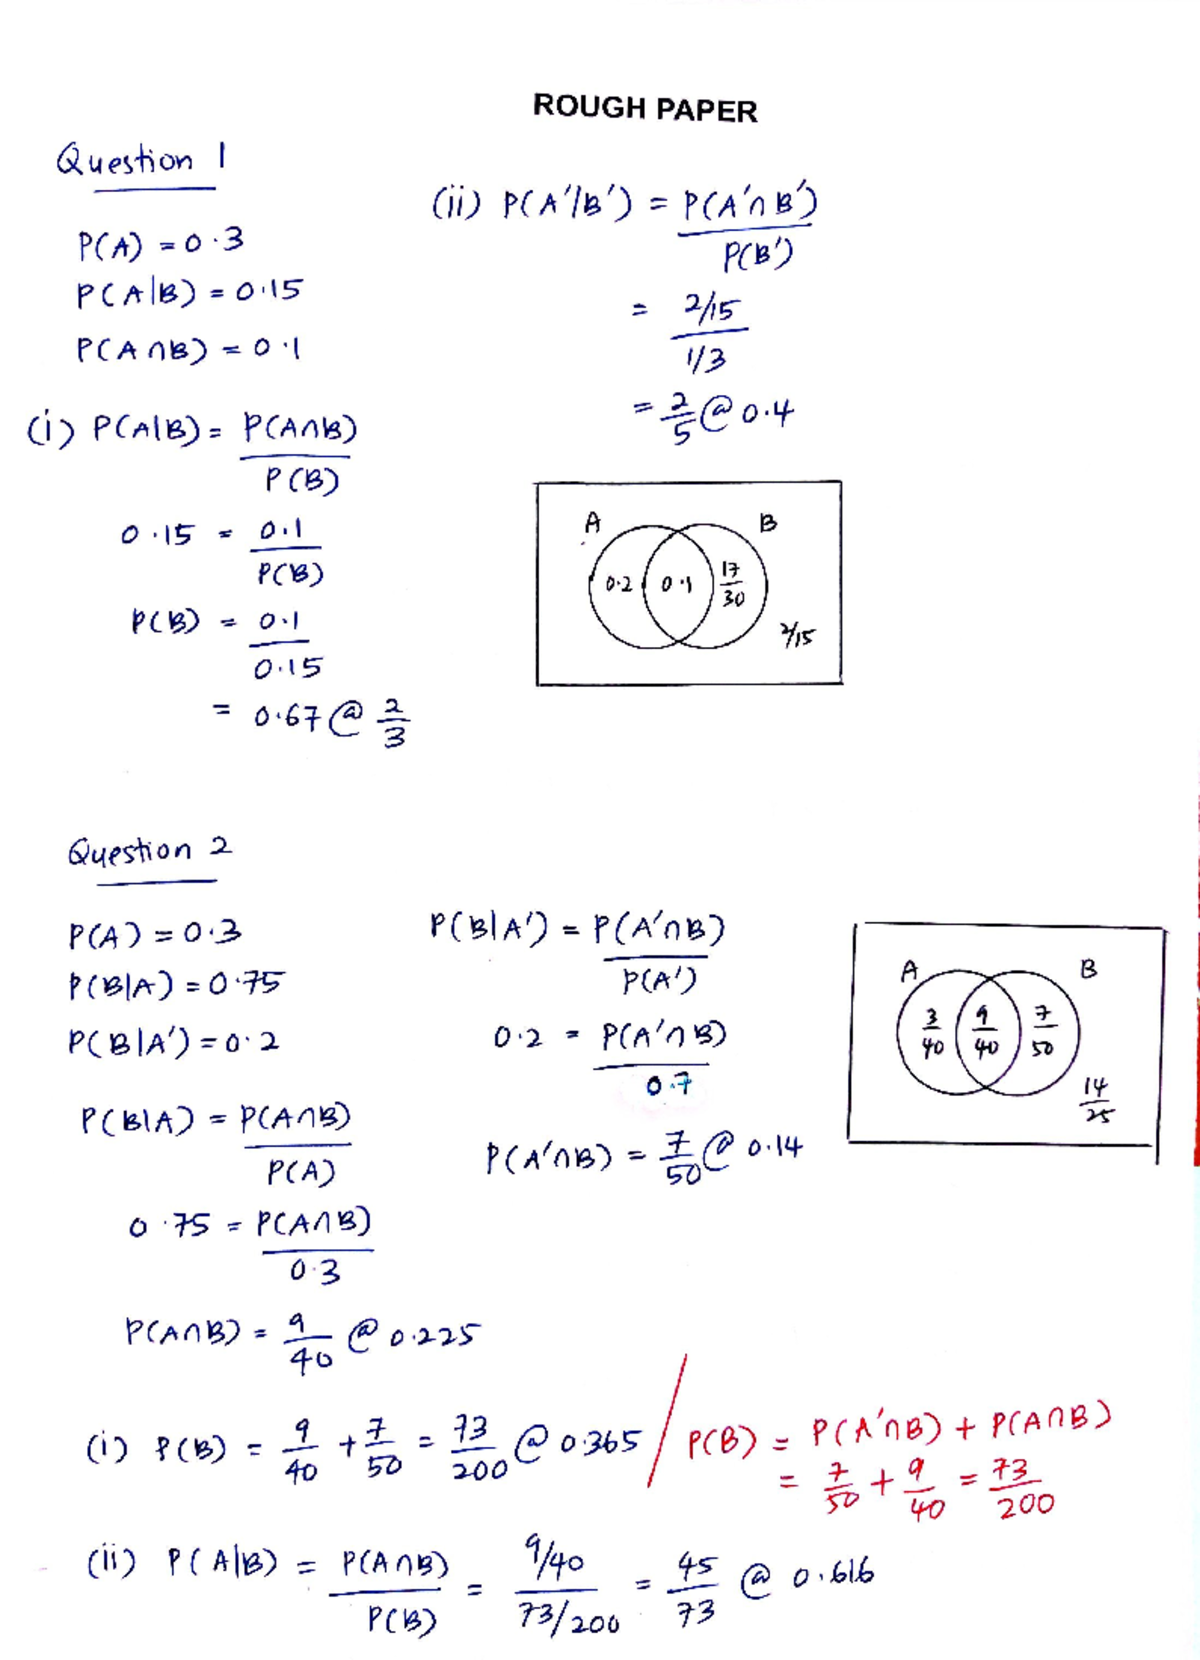 ROUGH PAPER
Question 1
P(A) = 0.3
P(A|B) = 0.15
P(A∩B) = 0.1
(i) P(A|B) = P(A∩B)
P(B)
0.15 = 0.1
P(B)
P(B) = 0.1
0.15
= 0.67 @ 2/3
(ii) P(A'/B') = P(A'∩B')
P(B')
= 2/15
1/3
= 2/5 @ 0.4
A B
0.2 0.1 17/30
2/15
Question 2
P(A) = 0.3
P(B|A) = 0.75
P(B|A') = 0.2
P(B|A) = P(A∩B)
P(A)
0.75 = P(A∩B)
0.3
P(A∩B) = 9/40 @ 0.225
P(B|A') = P(A'∩B)
P(A')
0.2 = P(A'∩B)
0.7
P(A'∩B) = 7/50 @ 0.14
A B
3/40 9/40 7/50
14/25
(i) P(B) = 9/40 + 7/50 = 73/200 @ 0.365 / P(B) = P(A'∩B) + P(A∩B)
= 7/50 + 9/40 = 73/200
(ii) P(A|B) = P(A∩B)/P(B) = 9/40 / 73/200 = 45/73 @ 0.616